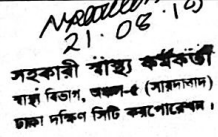 21.08.18
সহকারী স্বাস্থ্য কর্মকর্তা
স্বাস্থ্য বিভাগ, অঞ্চল-৫ (সায়দাবাদ)
ঢাকা দক্ষিণ সিটি কর্পোরেশন।